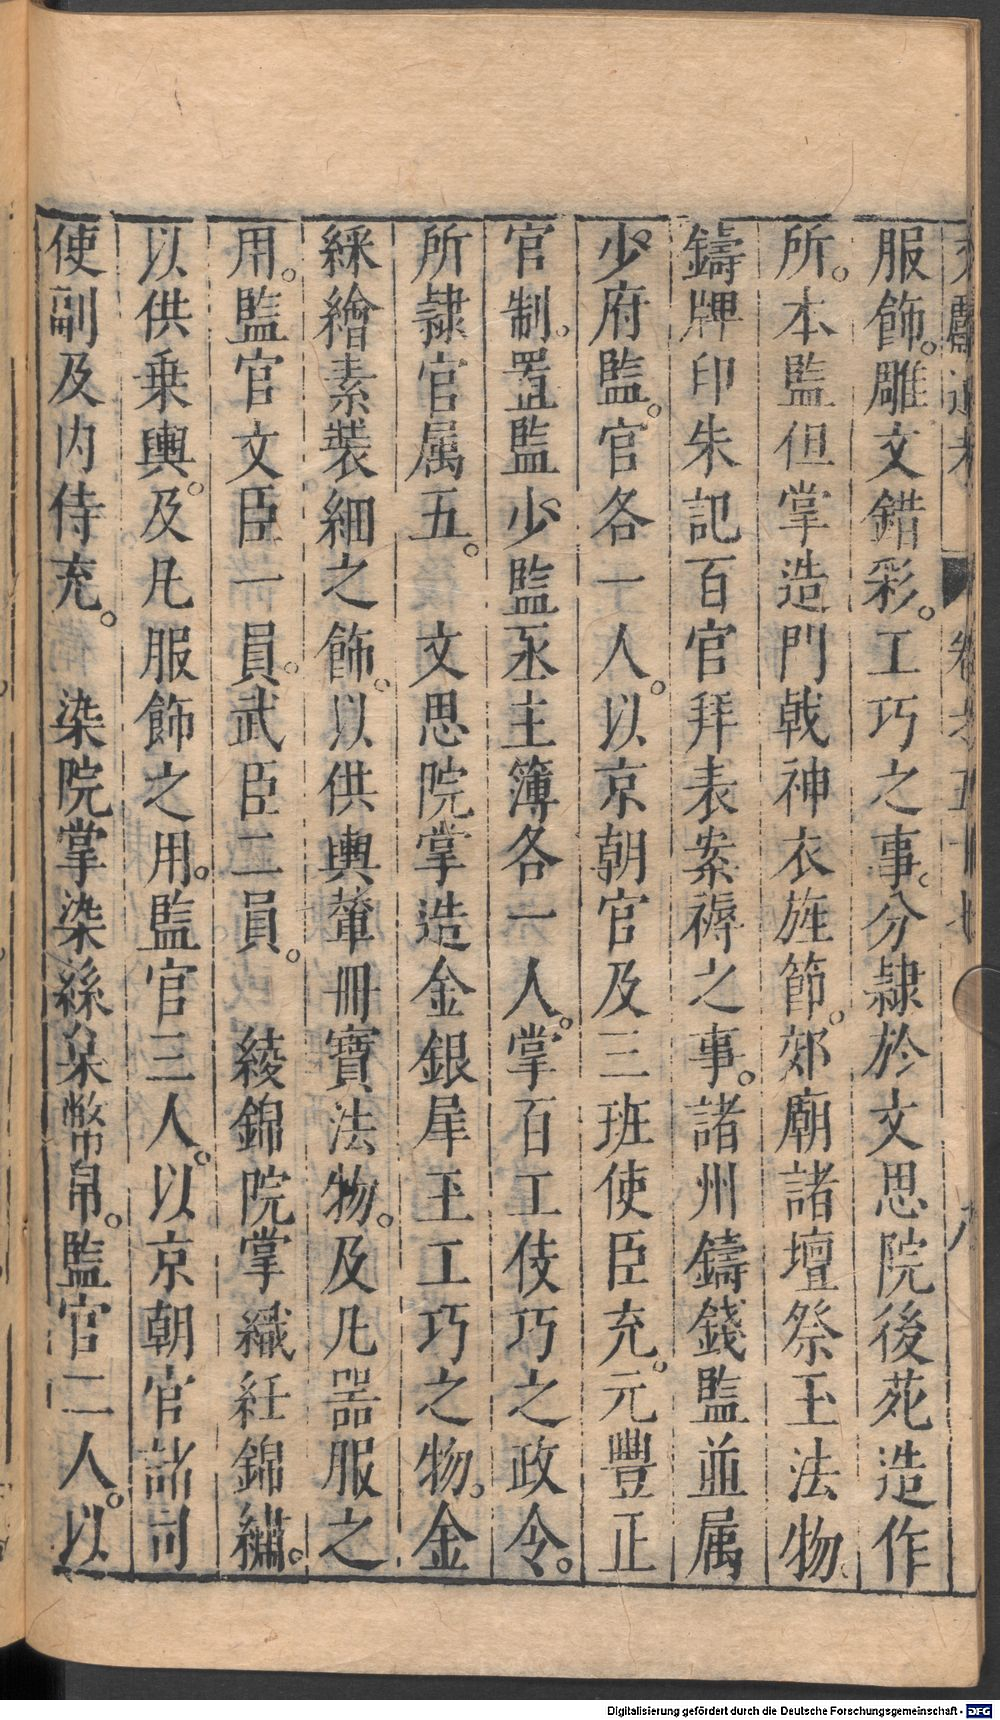 服飾。雕文錯彩。工巧之事。分隷於文思院後苑造作
所。本監但掌造門戟神衣旌節。郊廟諸壇祭玉法物。
鑄牌印朱記百官拜表案褥之事。諸州鑄錢監並属
少府監。官各一人。以京朝官及三班使臣充。元豐正
官制。置監少監丞主簿各一人。掌百工伎巧之政令。
所隷官属五。 文思院掌造金銀犀玉工巧之物。金
綵繪素裝細之飾。以供輿輦冊寶法物。及凡器服之
用。監官文臣一員。武臣二員。 綾錦院掌織紝錦繡。
以供乗輿。及凡服飾之用。監官三人。以京朝官諸司
使副及内侍充。 染院掌染絲枲幣帛。監官二人。以
Digitalisierung gefördert durch die Deutsche Forschungsgemeinschaft - DFG